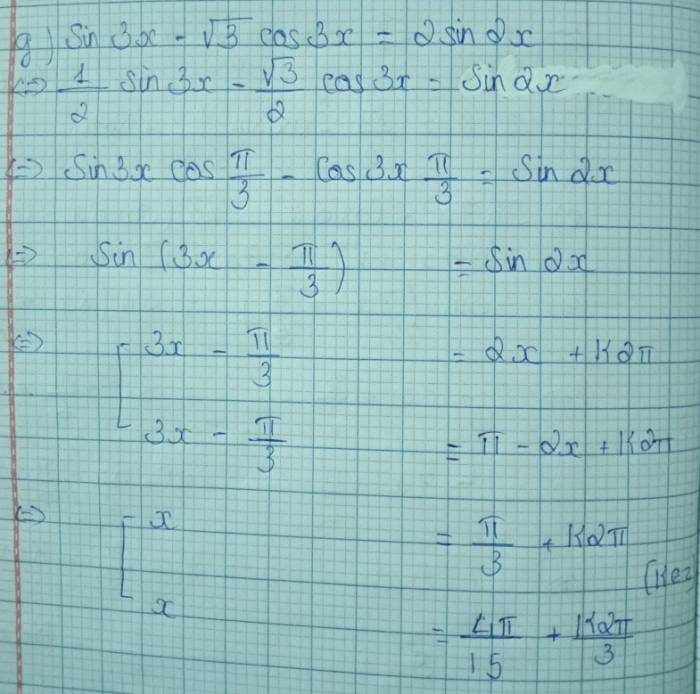 g) Sin 3x - √3 cos 3x = 2 sin 2x
<=> 1/2 sin 3x - √3/2 cos 3x = Sin 2x
<=> Sin 3x cos π/3 - cos 3x π/3 = Sin 2x
<=> Sin (3x - π/3) = Sin 2x
<=> [ 3x - π/3 = 2x + K2π
3x - π/3 = π - 2x + K2π
<=> [ x = π/3 + K2π
(K∈Z
x = 4π/15 + K2π/3